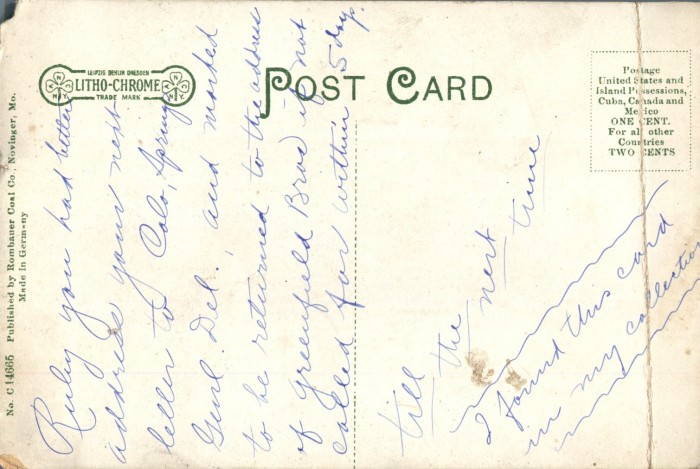 LEIPZIG BERLIN DRESDEN
LITHO-CHROME
TRADE MARK
POST CARD
Postage
United States and
Island Possessions,
Cuba, Canada and
Mexico
ONE CENT.
For all other
Countries
TWO CENTS
No. C 14665 Published by Rombauer Coal Co., Novinger, Mo.
Made in Germany
Ruby you had better
address your next
letter to Colo, Springs
Genl. Del. and marked
to be returned to the address
of Greenfield Bros if not
called for within 5 days.
till the next time
I found this card
in my collection